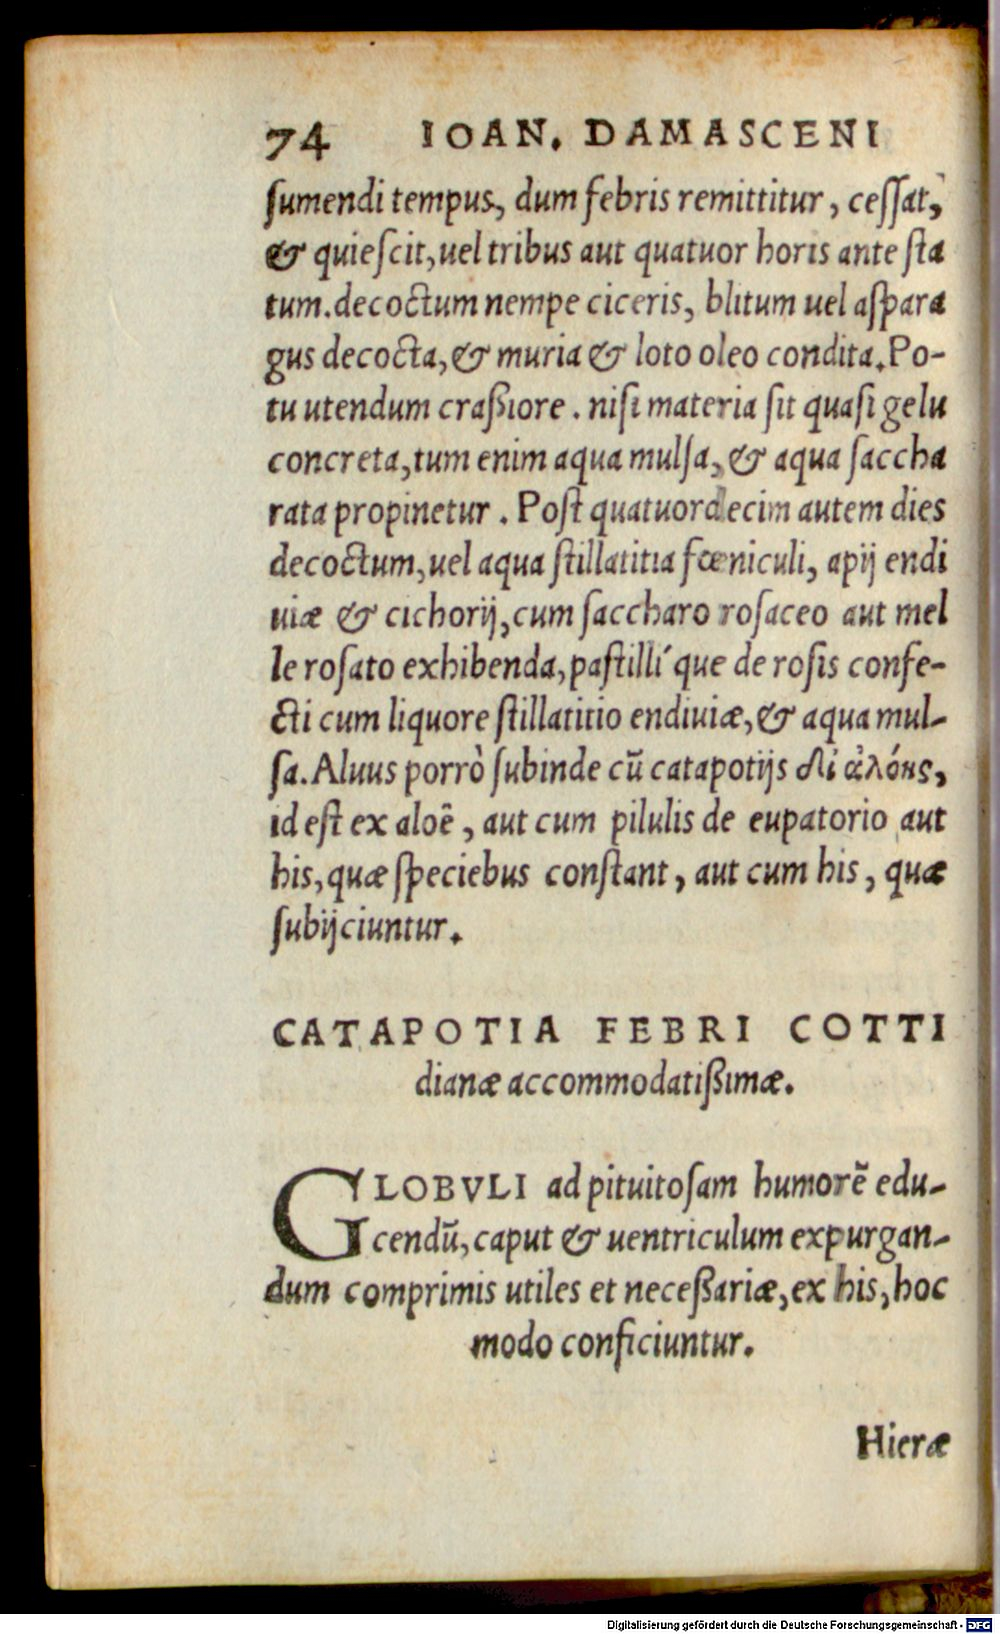 74 IOAN. DAMASCENI
sumendi tempus, dum febris remittitur, cessat,
& quiescit, uel tribus aut quatuor horis ante sta
tum. decoctum nempe ciceris, blitum uel aspara
gus decocta, & muria & loto oleo condita. Po-
tu utendum craßiore. nisi materia sit quasi gelu
concreta, tum enim aqua mulsa, & aqua saccha
rata propinetur. Post quatuordecim autem dies
decoctum, uel aqua stillatitia fœniculi, apij endi
uiæ & cichorij, cum saccharo rosaceo aut mel
le rosato exhibenda, pastilli´que de rosis confe-
cti cum liquore stillatitio endiuiæ, & aqua mul-
sa. Aluus porrò subinde cũ catapotijs δἰ ἀλόης,
id est ex aloë, aut cum pilulis de eupatorio aut
his, quæ speciebus constant, aut cum his, quæ
subijciuntur.
CATAPOTIA FEBRI COTTI
dianæ accommodatißimæ.
GLOBVLI ad pituitosam humorẽ edu-
cendũ, caput & uentriculum expurgan-
dum comprimis utiles et neceßariæ, ex his, hoc
modo conficiuntur.
Hieræ
Digitalisierung gefördert durch die Deutsche Forschungsgemeinschaft - DFG